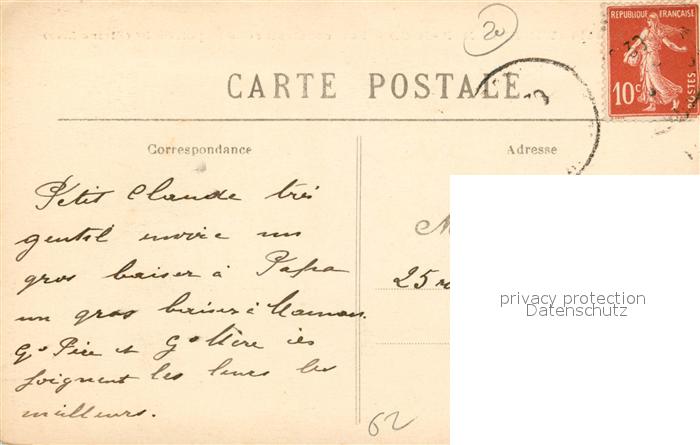 20
REPUBLIQUE FRANÇAISE
10c
POSTES
CARTE POSTALE
Correspondance
Adresse
Petit Claude très
gentil envoie un
gros baiser à Papa
un gros baiser à Maman.
Gd Père et Gd Mère
joignent les leurs les
meilleurs.
M
25
privacy protection
Datenschutz
62